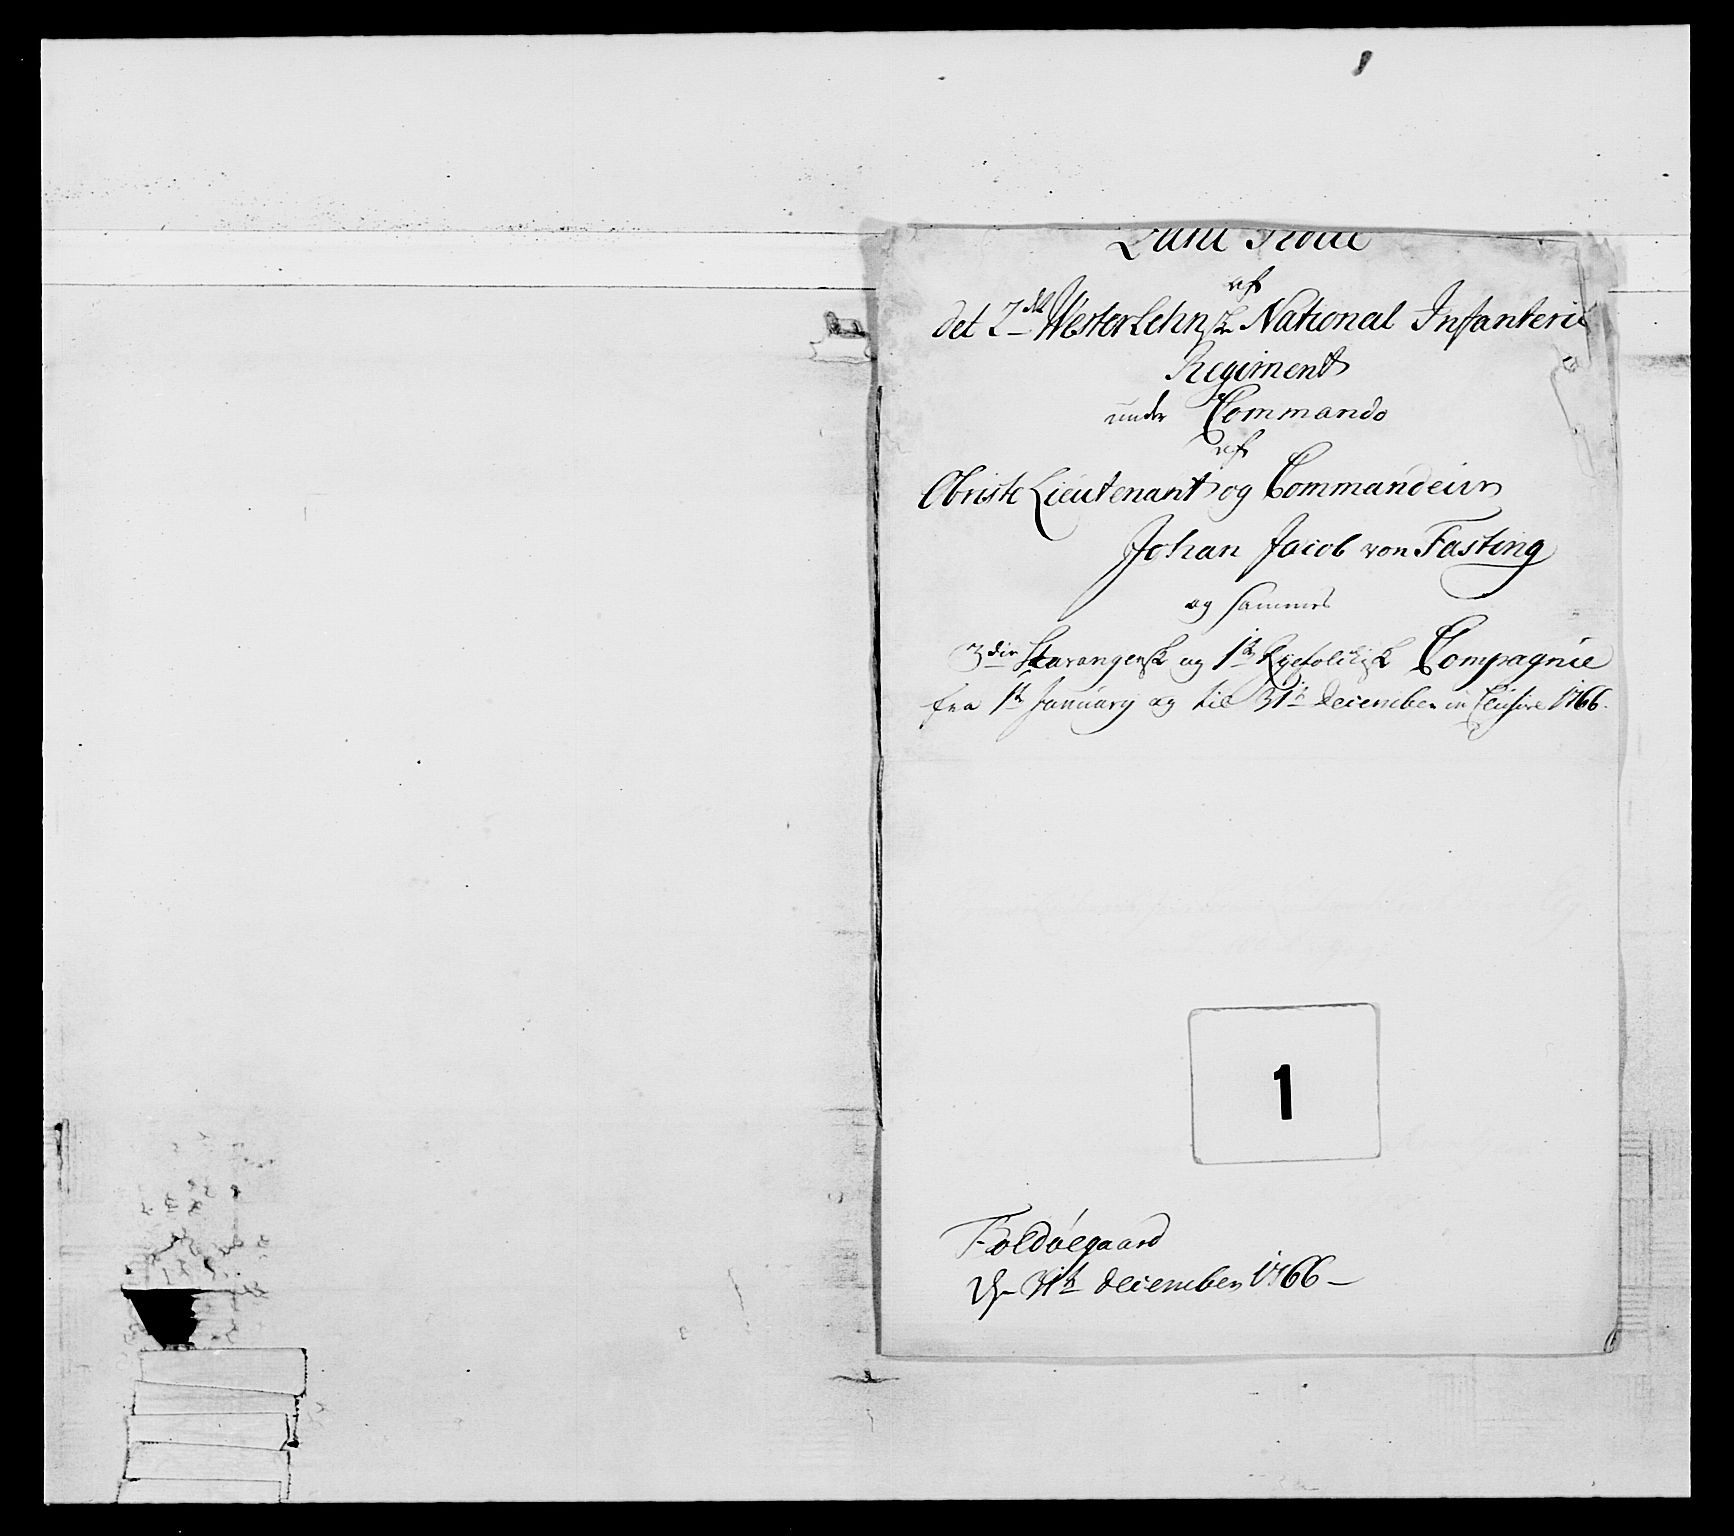 Rulle
af
det 2det Westerlehnske National Infanterie
Regiment
under Commando
af
Obriste Lieutenant og Commandeur
Johan Jacob von Fasting
og sammes
3die Stavangersk og 1te Ryefolckisk Compagnie
fra 1te January og til 31te December inclusive 1766.
1
Foldøegaard
d. 31te December 1766 –